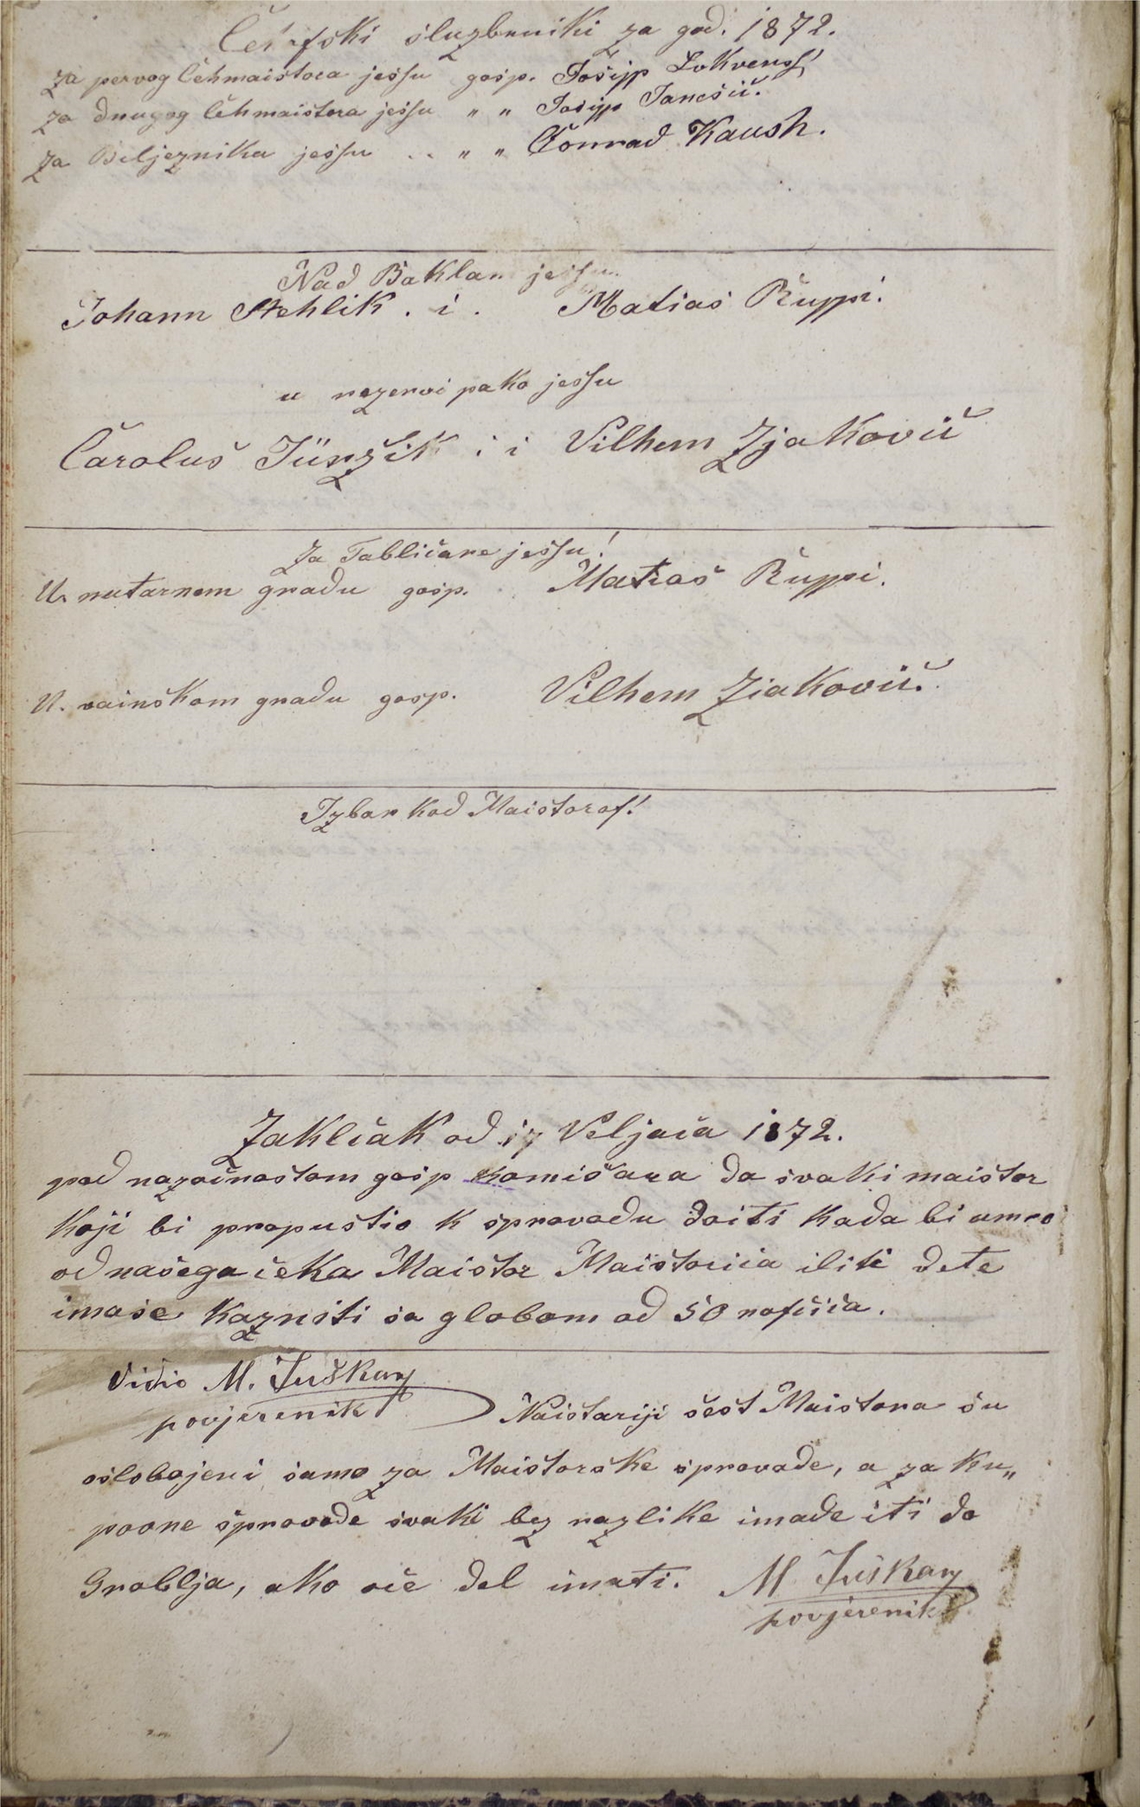 Čehofski službeniki za god. 1872.
Za pervog Čehmaistora jesśu gosp. Jośip Lokvensś
Za drugog Čehmaistora jesśu " " Jośip Janeśič.
Za Bilježnika jesśu .. " " Čonrad Kaush.
Nad Baklam jesśu
Johann Stehlik . i . Matiaś Ruppi.
u rezervi pako jesśu
Čaroluś Jünžik i Vilhem Zjakovič
Za Tabličare jesśu!
U. nutarnom gradu gosp. Matiaś Ruppi.
U. vainśkom gradu gosp. Vilhem Ziakovič.
Izbor kod Maistorof!
Zakličak od 17 Veljača 1872.
pod nazočnostom gosp Komiśara da svaki maistor
koji bi propustio k sprovodu doiti kada bi umro
od naśega čeka Maistor Maistorica iliti dete
imaśe kazniti sa globom od 50 nofčiča.
Vidio M. Juśkay
povjerenik
Naistariji śest Maistora śu
oslobojeni samo za Maistorske sprovade, a za ku„
poone sprovode svaki bez razlike imade iti do
Groblja, ako oče del imati. M Juśkay
povjerenik